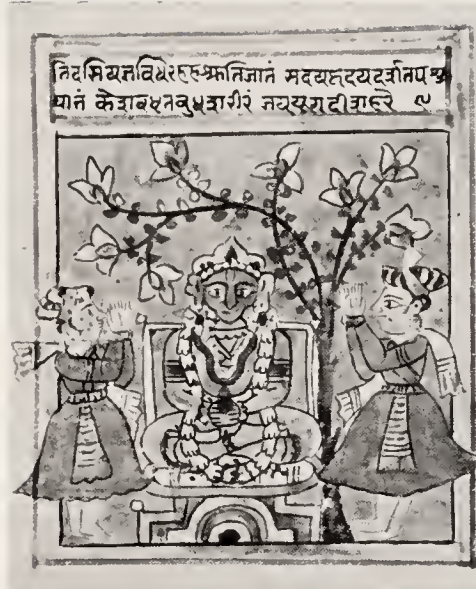 निदसियज्ञविधेरहहश्रुतिजातं सदयहृदयदर्शितपशु
घातं केशवधृतबुधशरीरं जयजगदीशहरे ९